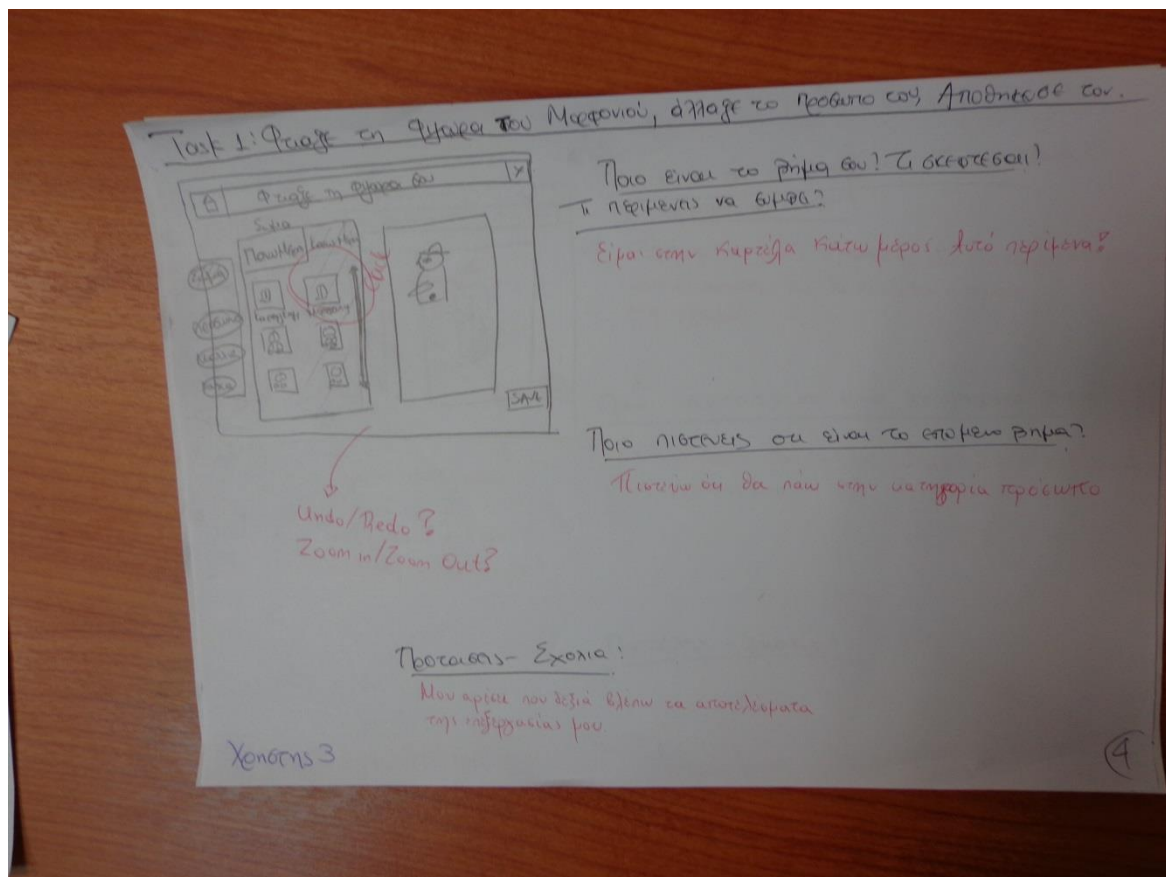 Task 1: Φτιαξε τη Φιγούρα του Μορφονιού, άλλαξε το Προσωπο του, Αποθηκευσε τον.
Φτιαξε τη φιγουρα σου
X
Σώμα
SAVE
Undo/Redo?
Zoom in/Zoom Out?
Ποιο ειναι το βήμα σου? Τι σκεφτεσαι?
Τι περιμενεις να συμβει?
Είμαι στην καρτέλα κάτω μέρος. Αυτό περίμενα?
Ποιο πιστευεις οτι είναι το επομενο βημα?
Πιστεύω ότι θα πάω στην κατηγορία πρόσωπο
Προτασεις - Σχολια:
Μου αρεσε που δεξιά βλέπω τα αποτελέσματα
της επεξεργασίας μου
Χρηστης 3
4